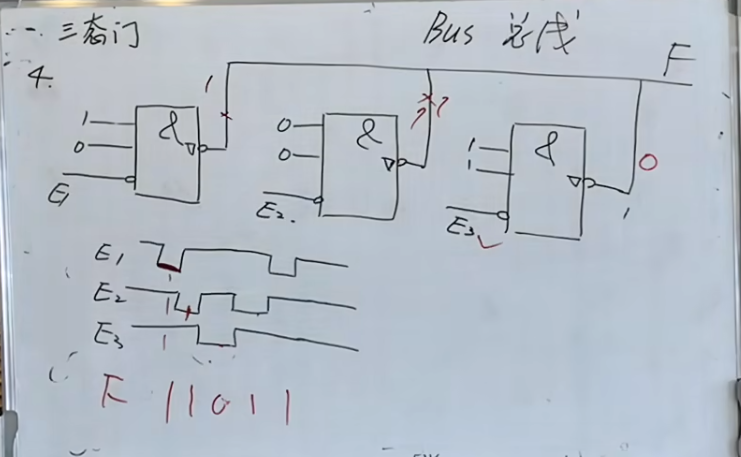 一. 三态门
Bus 总线
F
4.
1
1
0
&
E1
0
0
&
E2.
??
1
1
&
E3
0
1
E1
1
E2
1
E3
1
F 11011